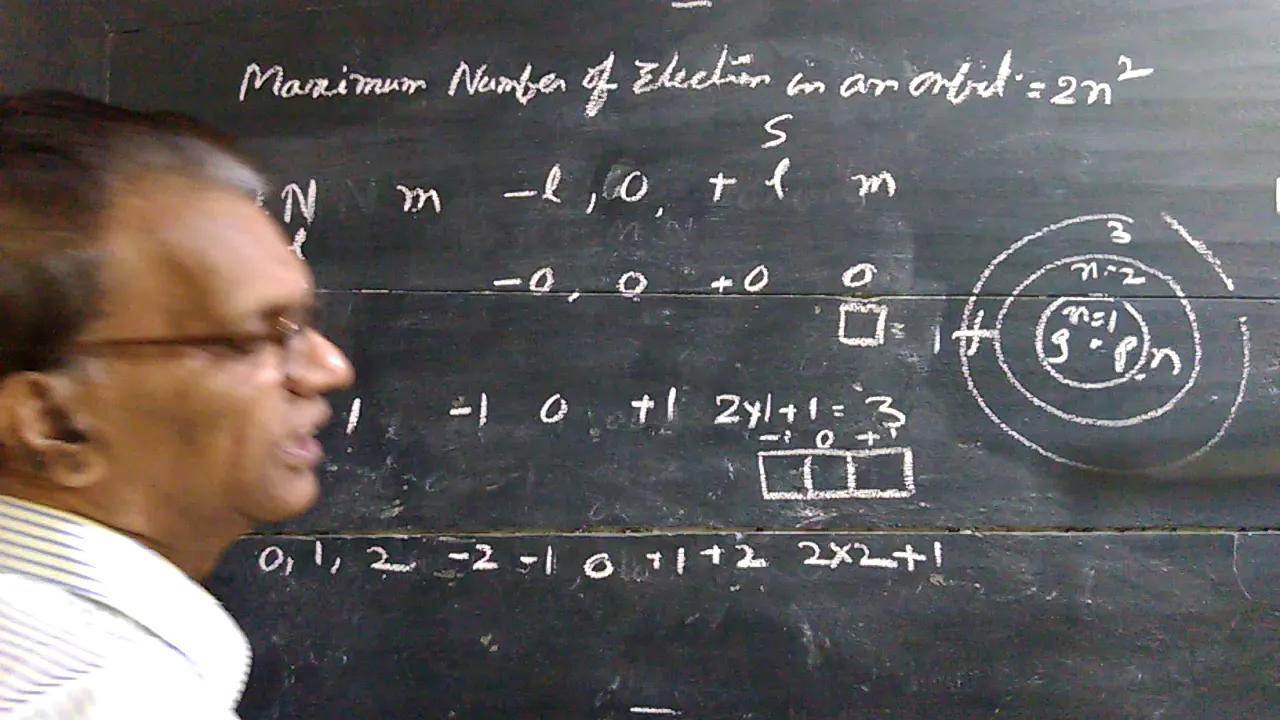 Maximum Number of Electron in an orbit = 2n²
S
N m -l, 0, + l m
l
-0, 0 +0 0
= 1
1 -1 0 +1 2x1+1 = 3
-1 0 +1
0, 1, 2 -2 -1 0 +1 +2 2x2+1
3
n=2
n=1
P n